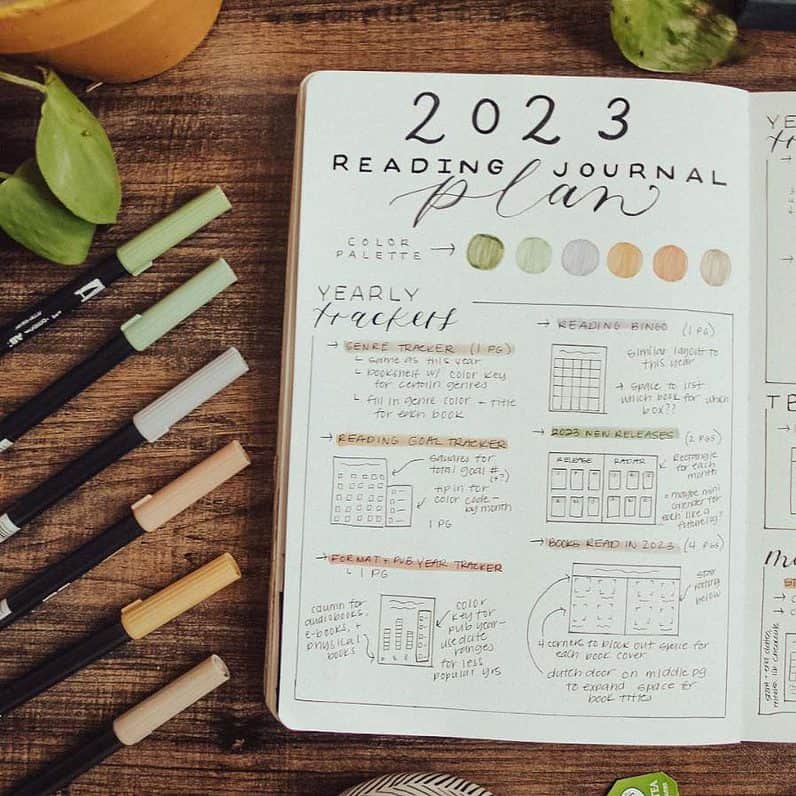 2023
READING JOURNAL
plan
COLOR
PALETTE →
YEARLY
trackers
→ GENRE TRACKER (1 PG)
↳ same as this year
↳ bookshelf w/ color key
for certain genres
↳ fill in genre color – title
for each book
→ READING GOAL TRACKER
squares for
total goal #
(+?)
tip in for
color code –
by month
1 PG
→ FORMAT + PUB YEAR TRACKER
↳ 1 PG
column for
audiobooks,
e-books, +
physical
books
color
key for
pub year –
use date
ranges
for less
popular yrs
→ READING BINGO (1 PG)
similar layout to
this year
→ space to list
which book for which
box??
→ 2023 NEW RELEASES (2 PGS)
RELEASE RADAR
Rectangle
for each
month
maybe mini
calender for
each like a
future log?
→ BOOKS READ IN 2023 (4 PGS)
star
rating
below
4 corners to block out space for
each book cover
dutch door on middle pg
to expand space for
book titles
YE
TB